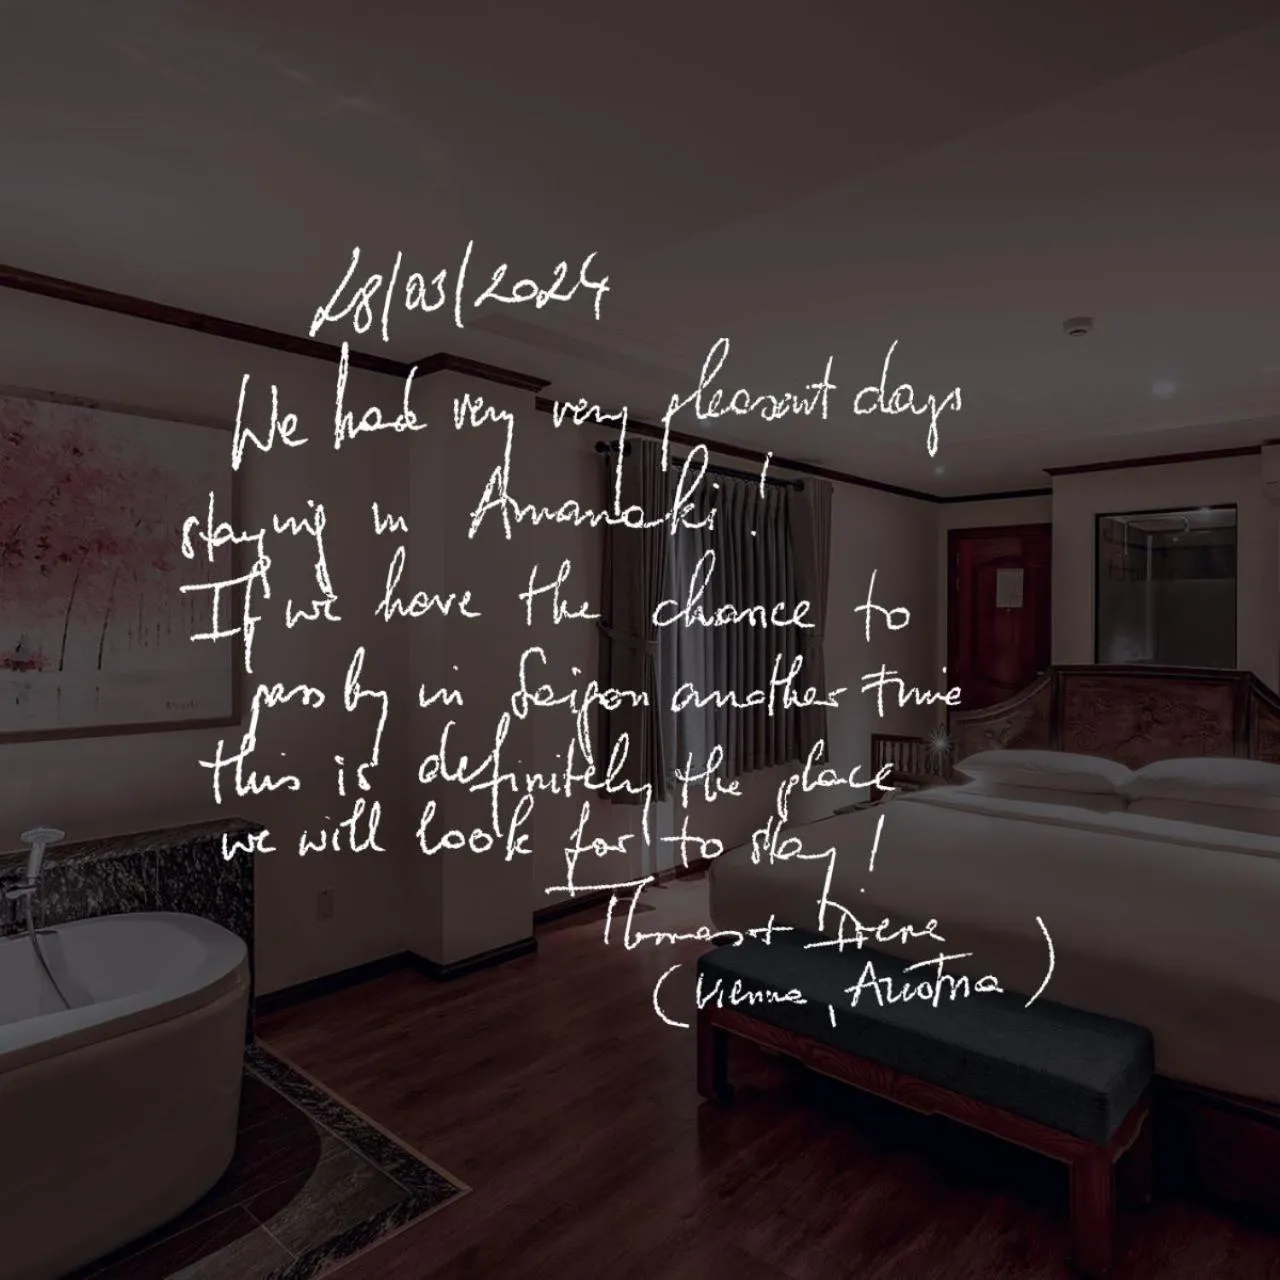 28/03/2024
We had very very pleasant days
staying in Amanaki!
If we have the chance to
pass by in Saigon another time
this is definitely the place
we will look for to stay!
Thomas + Irene
(Vienna, Austria)